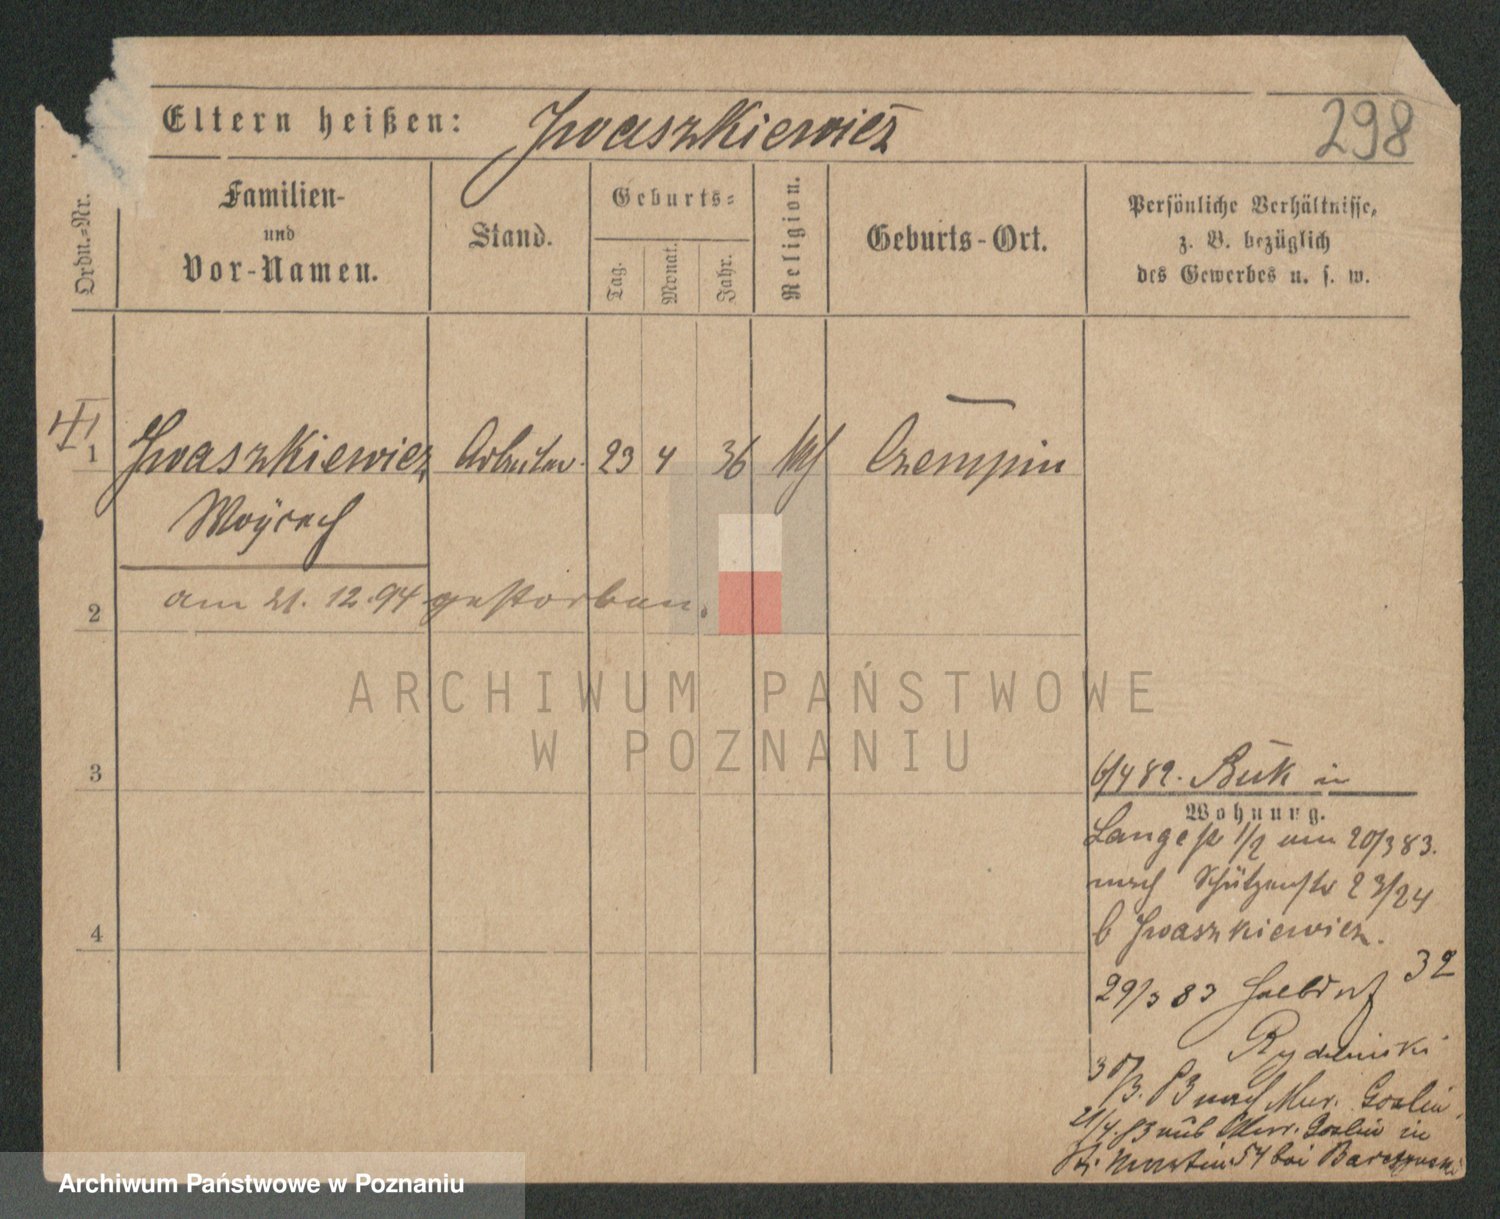 Eltern heißen: Iwaszkiewicz 298
Ordn.-Nr.
Familien-
und
Vor-Namen.
Stand.
Geburts-
Tag.
Monat.
Jahr.
Religion.
Geburts-Ort.
Persönliche Verhältnisse,
z. B. bezüglich
des Gewerbes u. s. w.
1 Iwaszkiewicz Arbeiter 23 4 36 Czempin
am 21. 12. 94 gestorben.
2
3
4
6/4 82. Buk in
Wohnung.
Langestr 1/2 am 20/3 83.
nach Schützenstr 23/24
b Iwaszkiewicz.
29/3 83 Halbdorf 32
nach Mur. Goslin
21/4. 83 aus Murr. Goslin in
St. Martin 54 bei
ARCHIWUM PAŃSTWOWE
W POZNANIU
Archiwum Państwowe w Poznaniu